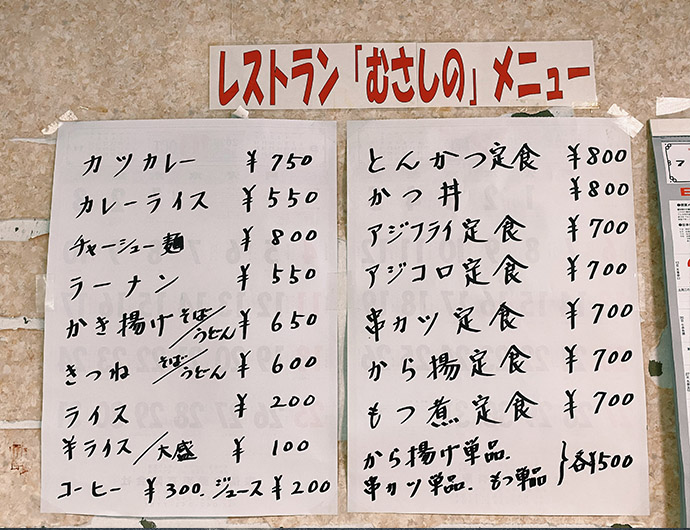 レストラン「むさしの」メニュー
カツカレー ¥750
カレーライス ¥550
チャーシュー麺 ¥800
ラーナン ¥550
かき揚げそば/うどん ¥650
きつね そば/うどん ¥600
ライス ¥200
半ライス/大盛 ¥100
コーヒー ¥300. ジュース ¥200
とんかつ定食 ¥800
かつ丼 ¥800
アジフライ定食 ¥700
アジコロ定食 ¥700
串カツ定食 ¥700
から揚定食 ¥700
もつ煮定食 ¥700
から揚げ単品.
串カツ単品. もつ単品 }各¥500